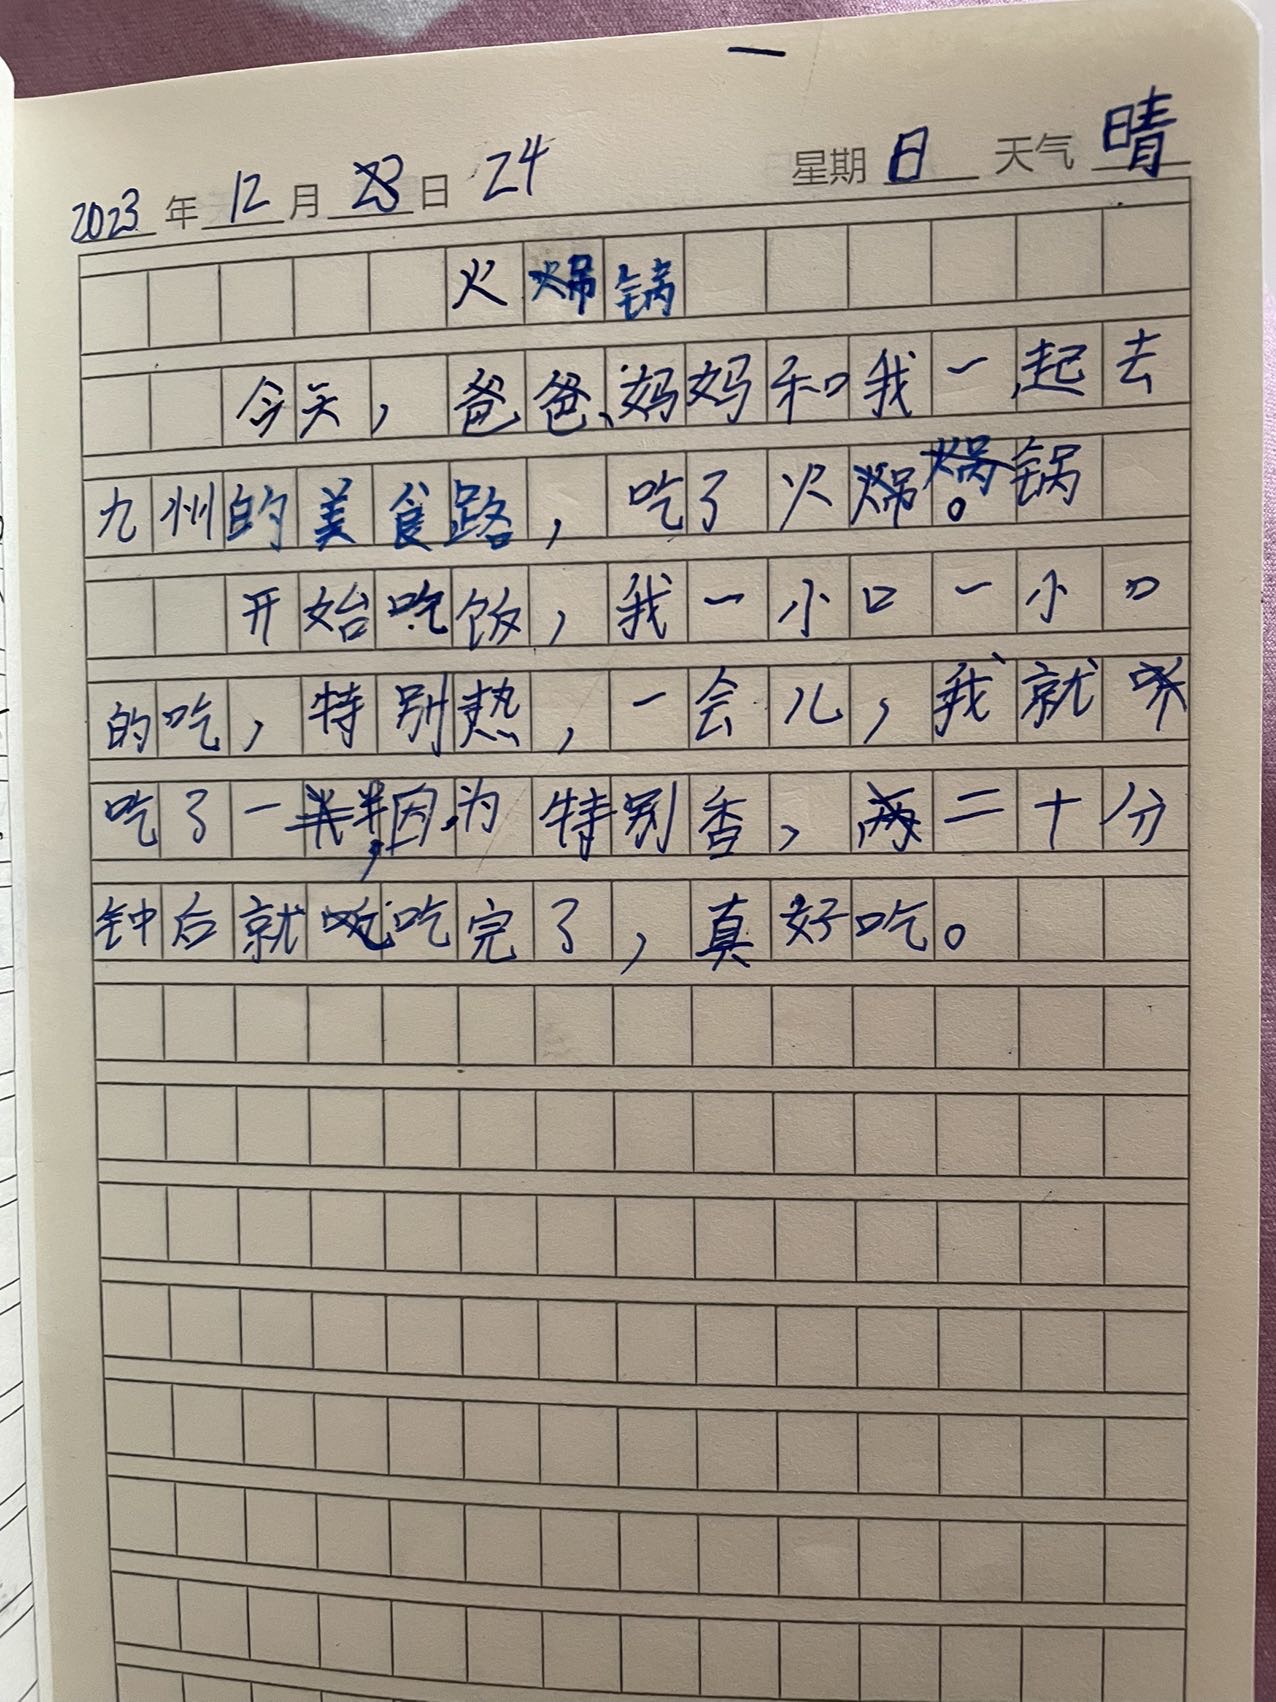 一
2023年12月28日 24 星期日 天气晴
火锅
今天，爸爸、妈妈和我一起去
九州的美食路，吃了火锅。
开始吃饭，我一小口一小口
的吃，特别热，一会儿，我就
吃了一半，因为特别香，二十分
钟后就吃完了，真好吃。